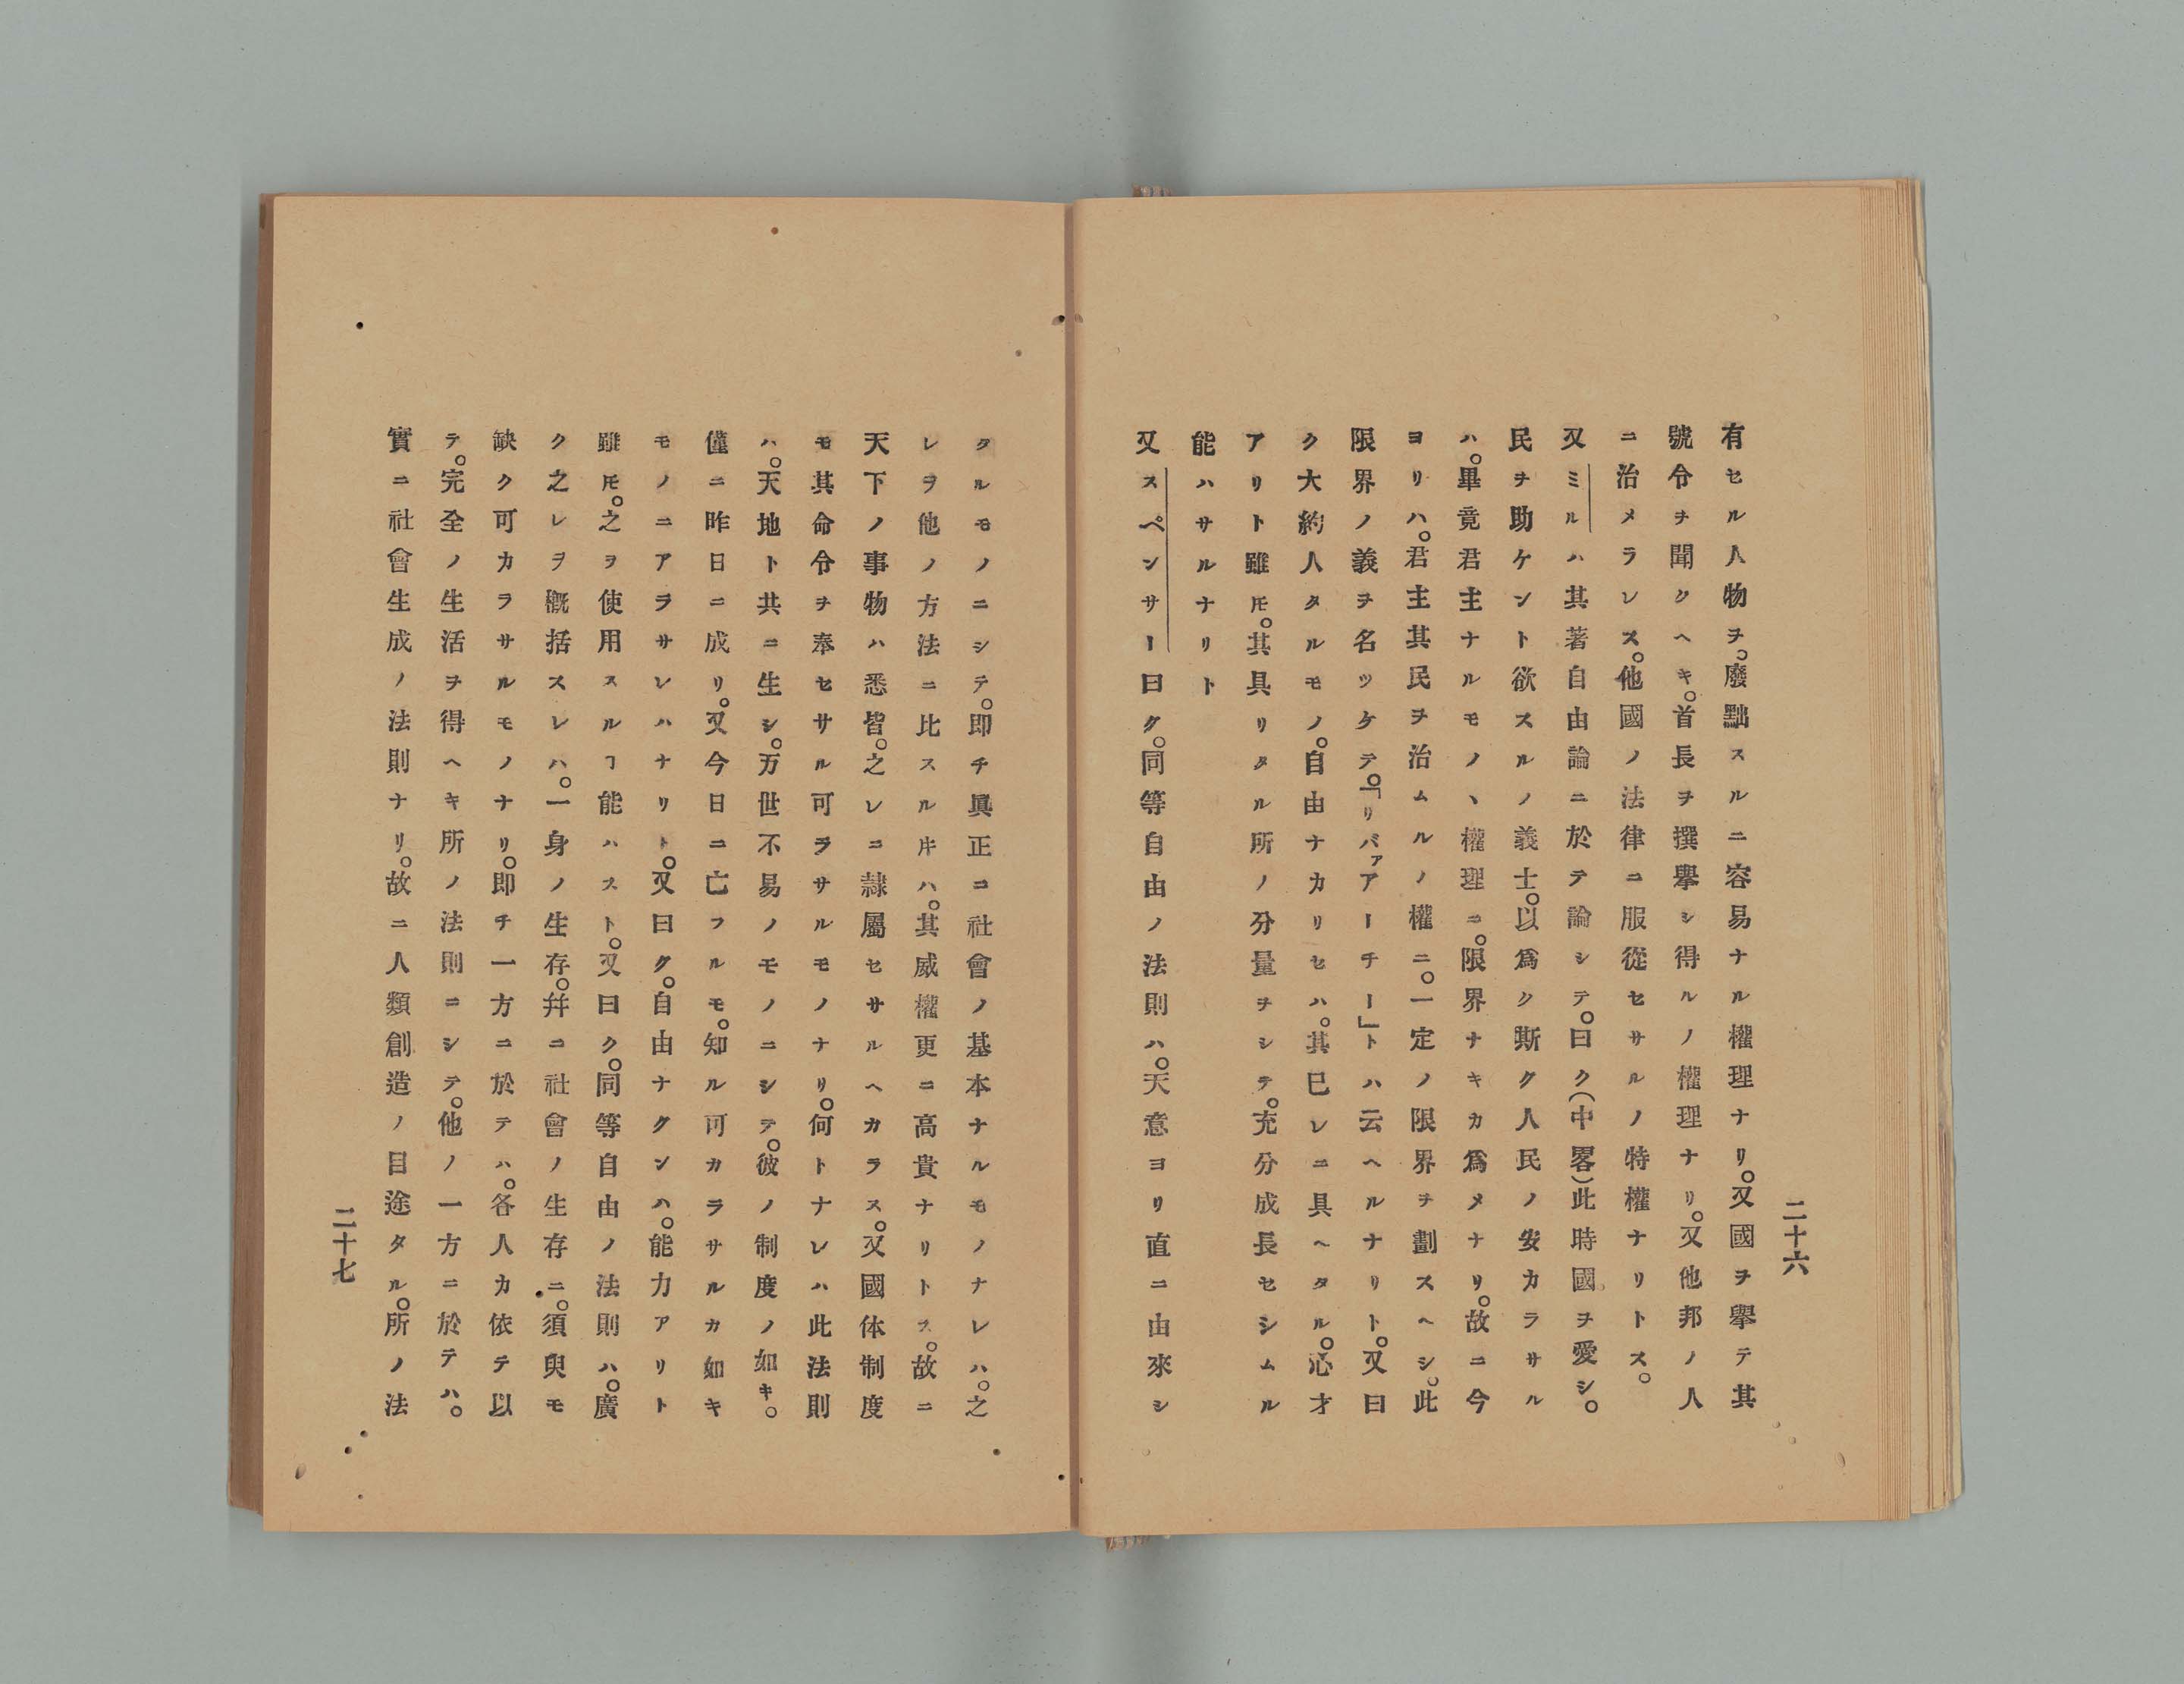 二十六
有セル人物ヲ。廢黜スルニ容易ナル權理ナリ。又國ヲ擧テ其
號令ヲ聞クヘキ。首長ヲ撰擧シ得ルノ權理ナリ。又他邦ノ人
ニ治メラレス。他國ノ法律ニ服從セサルノ特權ナリトス。
又ミルハ其著自由論ニ於テ論シテ。曰ク(中畧)此時國ヲ愛シ。
民ヲ助ケント欲スルノ義士。以爲ク斯ク人民ノ安カラサル
ハ。畢竟君主ナルモノヽ權理ニ。限界ナキカ爲メナリ。故ニ今
ヨリハ。君主其民ヲ治ムルノ權ニ。一定ノ限界ヲ劃スヘシ。此
限界ノ義ヲ名ツケテ。「リバアァーチー」トハ云ヘルナリト。又曰
ク大約人タルモノ。自由ナカリセハ。其已レニ具ヘタル。心才
アリト雖𪜈。其具リタル所ノ分量ヲシテ。充分成長セシムル
能ハサルナリト
又スペンサー曰ク。同等自由ノ法則ハ。天意ヨリ直ニ由來シ
タルモノニシテ。即チ眞正ニ社會ノ基本ナルモノナレハ。之
レヲ他ノ方法ニ比スル𪜈ハ。其威權更ニ高貴ナリトス。故ニ
天下ノ事物ハ悉皆。之レニ隷屬セサルヘカラス。又國体制度
モ其命令ヲ奉セサル可ラサルモノナリ。何トナレハ此法則
ハ。天地ト共ニ生シ。万世不易ノモノニシテ。彼ノ制度ノ如キ。
僅ニ昨日ニ成リ。又今日ニ亡フルモ。知ル可カラサルカ如キ
モノニアラサレハナリト。又曰ク。自由ナクンハ。能力アリト
雖𪜈。之ヲ使用スルヿ能ハスト。又曰ク。同等自由ノ法則ハ。廣
ク之レヲ概括スレハ。一身ノ生存。幷ニ社會ノ生存ニ。須臾モ
缺ク可カラサルモノナリ。即チ一方ニ於テハ。各人カ依テ以
テ。完全ノ生活ヲ得ヘキ所ノ法則ニシテ。他ノ一方ニ於テハ。
實ニ社會生成ノ法則ナリ。故ニ人類創造ノ目途タル。所ノ法
二十七